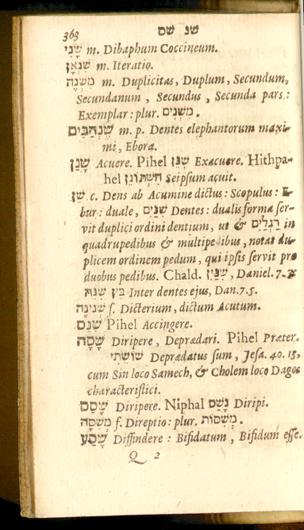 363 שנ שס
שָׁנִי m. Dibaphum Coccineum.
שִׁנְאָן m. Iteratio.
מִשְׁנֶה m. Duplicitas, Duplum, Secundum,
Secundanum, Secundus, Secunda pars:
Exemplar: plur. מִשְׁנִים.
שֶׁנְהַבִּים m. p. Dentes elephantorum maxi-
mi, Ebora.
שָׁנַן Acuere. Pihel שִׁנֵּן Exacuere. Hithpa-
hel Seipsum acuit.
שֵׁן c. Dens ab Acumine dictus: Scopulus: E-
bur: duale, שִׁנַּיִם Dentes: dualis forma ser-
vit duplici ordini dentium, ut & רַגְלַיִם in
quadrupedibus & multipedibus, notat du-
plicem ordinem pedum, qui ipsis servit pro
duobus pedibus. Chald. שִׁנַּיִן, Daniel. 7. 7.
בֵּין Inter dentes ejus, Dan. 7. 5.
שְׁנִינָה f. Dicterium, dictum Acutum.
שָׁנַס Pihel Accingere.
שָׁסָה Diripere, Depradari. Pihel Præter.
שׁוֹשֵׂתִי Depradatus sum, Jesa. 40. 13,
cum Sin loco Samech, & Cholem loco Dages
characteristici.
שָׁסַס Diripere. Niphal נָשַׁס Diripi.
מְשִׁסָּה f. Direptio: plur. מְשִׁסּוֹת.
שָׁסַע Diffindere: Bifidatum, Bifidum esse.
Q 2